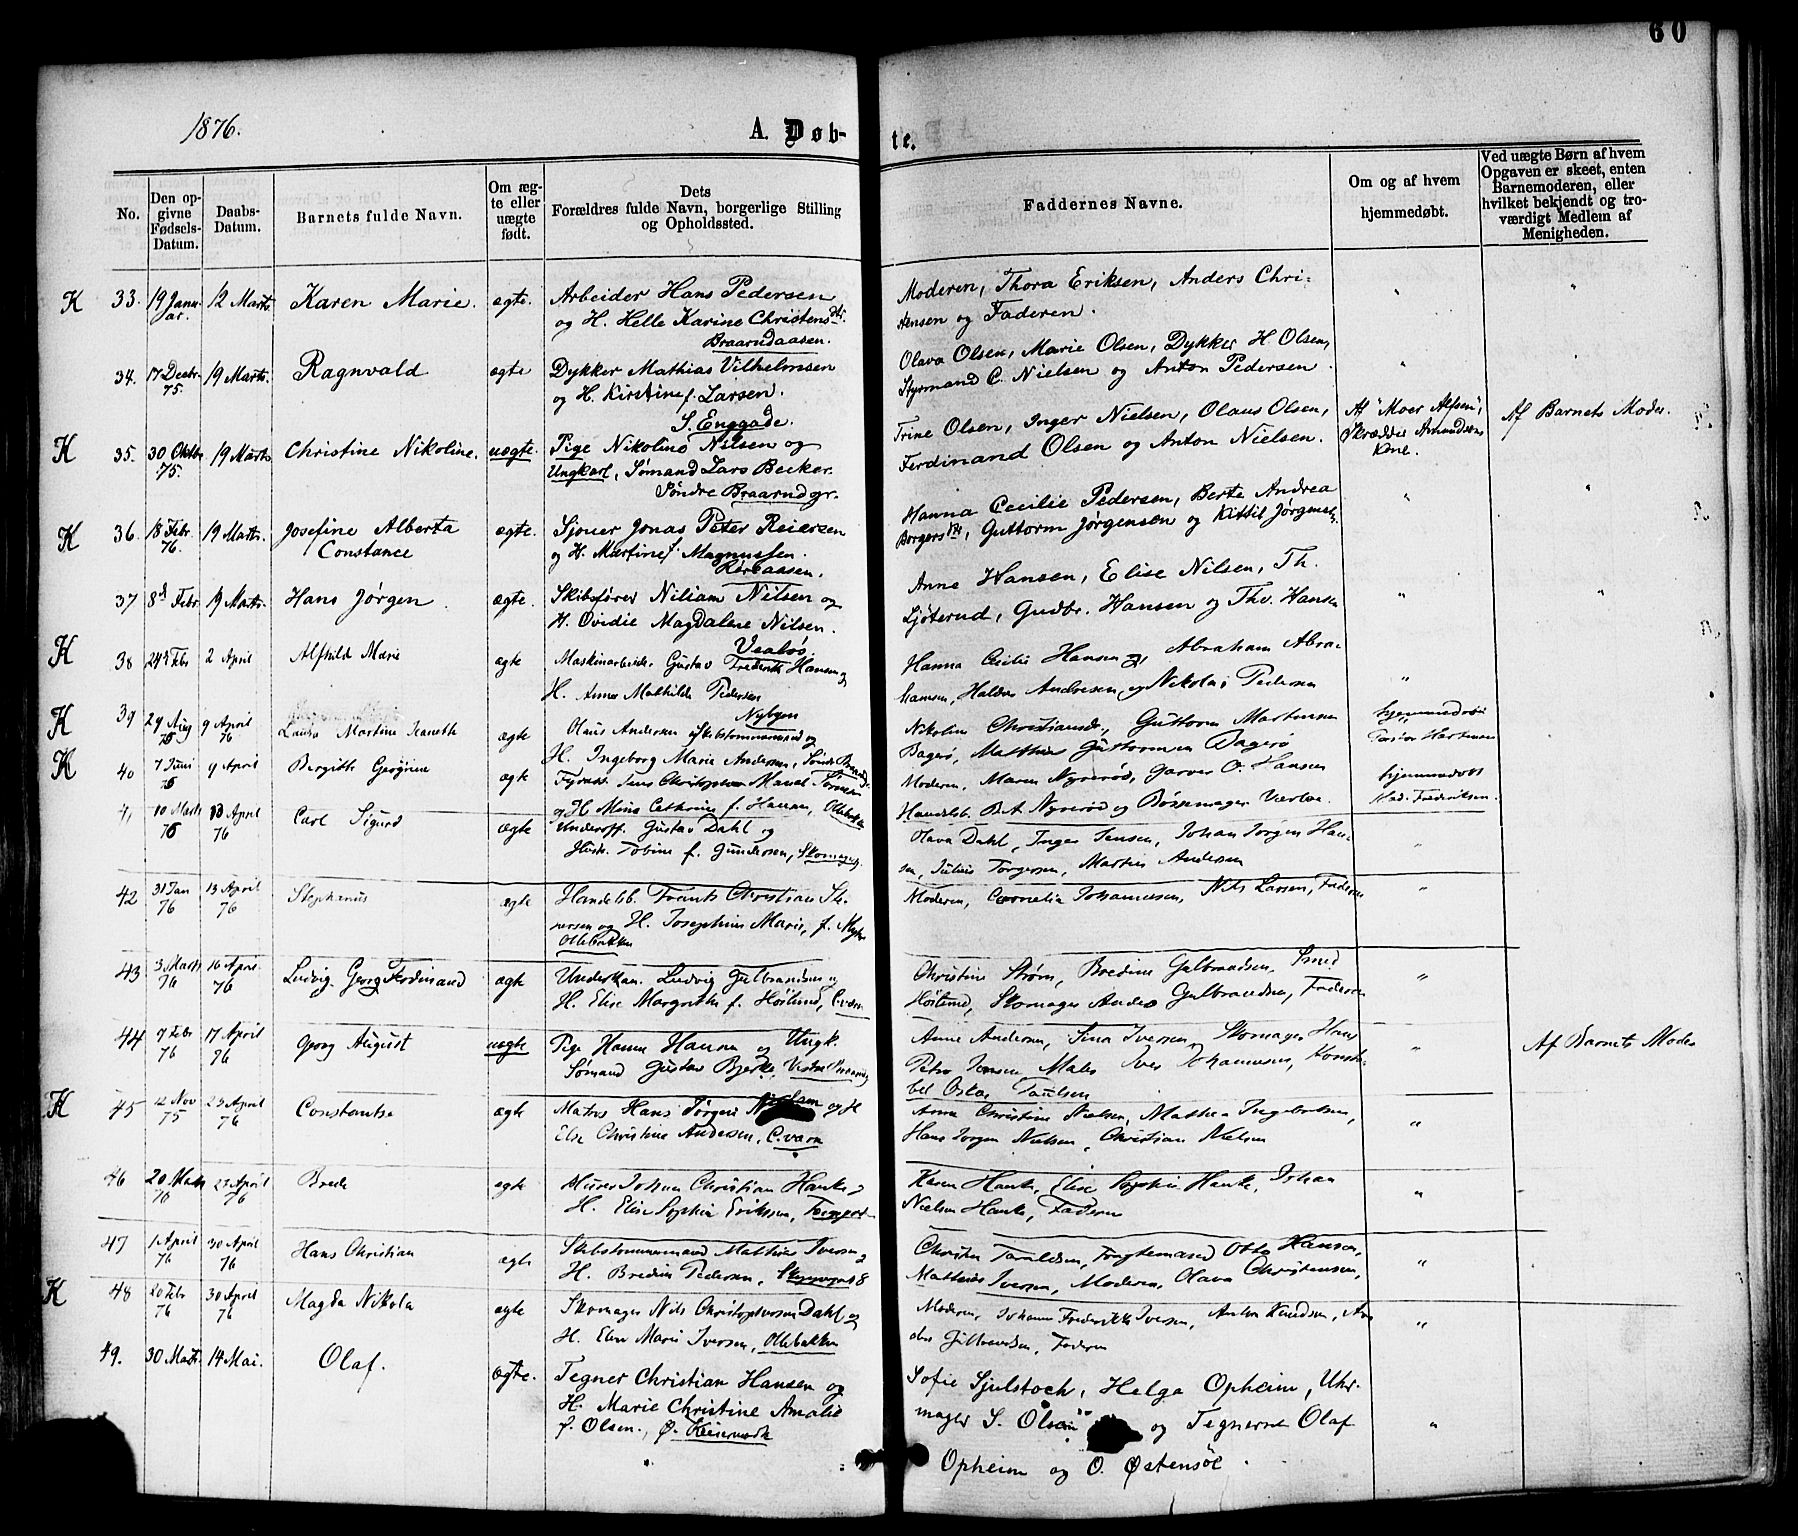 60
1876.
A. Døb-
te.
No.
Den op-
givne
Fødsels-
Datum.
Daabs-
Datum.
Barnets fulde Navn.
Om æg-
te eller
uægte
født.
Dets
Forældres fulde Navn, borgerlige Stilling
og Opholdssted.
Faddernes Navne.
Om og af hvem
hjemmedøbt.
Ved uægte Børn af hvem
Opgaven er skeet, enten
Barnemoderen, eller
hvilket bekjendt og tro-
værdigt Medlem af
Menigheden.
K 33. 19 Janu- 12 Marts Karen Marie. ægte. Arbeider Hans Pedersen Moderen, Thora Eriksen, Anders Chri-
ar. og H. Helle Karine Christensdtr. stensen og Faderen.
Braarudaasen.
34. 17 Decbr. 19 Marts. Ragnvald ægte Dykker Mathias Vilhelmsen Olava Olsen, Marie Olsen, Dykker H. Olsen,
75. og H. Kirstine f. Larsen. Styrmand C. Nielsen og Anton Pedersen.
S. Enggade.
K 35. 30 Oktbr 19 Marts Christine Nikoline. uægte. Pige Nikoline Nilsen og Trine Olsen, Inger Nielsen, Olaus Olsen, Af "Moer Alfsen", Af Barnets Moder.
75. Ungkarl, Sømand Lars Becker Ferdinand Olsen og Anton Nielsen. Skrædder Amundsens
Søndre Braarudgr. Kone.
K 36. 18 Febr. 19 Marts. Josefine Alberta ægte. Sjouer Jonas Peter Reiersen Hanna Cecilie Pedersen, Berte Andrea
76. Constance og H. Martine f. Magnussen. Borgersdtr, Guttorm Jørgensen og Kittil Jørgensen.
Rørbaasen.
37 8de Febr. 19 Marts. Hans Jørgen ægte. Skibsfører Niliam Nilsen og Anne Hansen, Elise Nilsen, Th.
H. Ovidie Magdalene Nilsen. Ljøterud, Gudbr. Hansen og Thv. Hansen
K 38 24de Febr 2 April Alfhild Marie ægte Maskinarbeider Gustav Frederik Hansen og Hanna Cecilie Hansen og Abraham Abra-
H. Anne Mathilde Pedersen hamsen, Andresen og Nikolai Pedersen
Nybyen
K 39 29 Aug 9 April Laura Martine Jeanette ægte Olaus Andersen Skibstømmermand og Guttorm Martinsen hjemmedøbt
75 76 H. Ingeborg Marie Andersen, Bagerø, Mathea Guttormsen Bagerø
K 40 7 Juni 9 April Bergithe Georgine ægte Moderen, Maren Nyrerød, Garver O. Hansen hjemmedøbt
75 og H. f. Hansen, Ollebakken Handelsb. B.A. Nyrerød og Bøssemager Mad. Frederiksen.
41 10 Marts 10 April Carl Sigurd ægte Underoff. Gustav Dahl og Olava Dahl, Inger Jensen, Johan Jørgen Han-
75 76 Hust. Tobine f. Gundersen, sen, Julius Torgersen, Martin Andersen
42 31 Jan 13 April Stephanus ægte Handelsb. Frants Christian Moderen, Cornelia Johannesen, Nils Larsen, Faderen
76 76 og H. Josephine Marie, f.
Ollebakken
43 3 Marts 16 April Ludvig Georg Ferdinand ægte Ludvig Gulbrandsen og Christine Strøm, Bredine Gulbrandsen, Smed
76 76 H. Elise Margrethe f. Høilund, C. værn Høilund, Skomager Anders Gulbrandsen, Faderen
44 7 Febr 17 April Georg August uægte Pige Hanna Hansen og Ungk. Anne Andersen, Sina Iversen, Skomager Hans Af Barnets Moder
76 76 Sømand Gustav Bjerke, Petro Jensen Maler Iver Johannesen, Konsta-
bel Oskar Paulsen
K 45 12 Nov 23 April Constantse ægte Matros Hans Jørgen Nielsen og H Anne Christine Nielsen, Mathea Ingebretsen,
75 76 Else Christine Andersen, C. værn Hans Jørgen Nielsen, Christian Nielsen
46 20 Marts 23 April Brede ægte Murer Johan Christian Hanke og Karen Hanke, Elise Sophie Hanke, Johan
76 76 H. Elise Sophie Eriksen, Nielsen Hanke, Faderen
47 1 April 30 April Hans Christian ægte Skibstømmermand Mathias Iversen og Christen Taraldsen, Fragtemand Otto Hansen,
76 76 H. Bredine Pedersen, Mathias Iversen, Moderen, Olava Christensen,
K 48 20 Febr 30 April Magda Nikola ægte Skomager Nils Christophersen Dahl og Moderen, Johanne Frederikke Iversen, Anton Knudsen, An-
76 76 H. Elen Marie Iversen, Ollebakken Faderen
49. 30 Marts. 14 Mai. Olaf. ægte. Tegner Christian Hansen og Sofie Sjulstoch, Helga Opheim, Uhr-
H. Marie Christine Amalie mager S. Olsen og Tegnerne Olaf
f. Olsen., Ø. Keisermark Opheim og O. Østensøe.